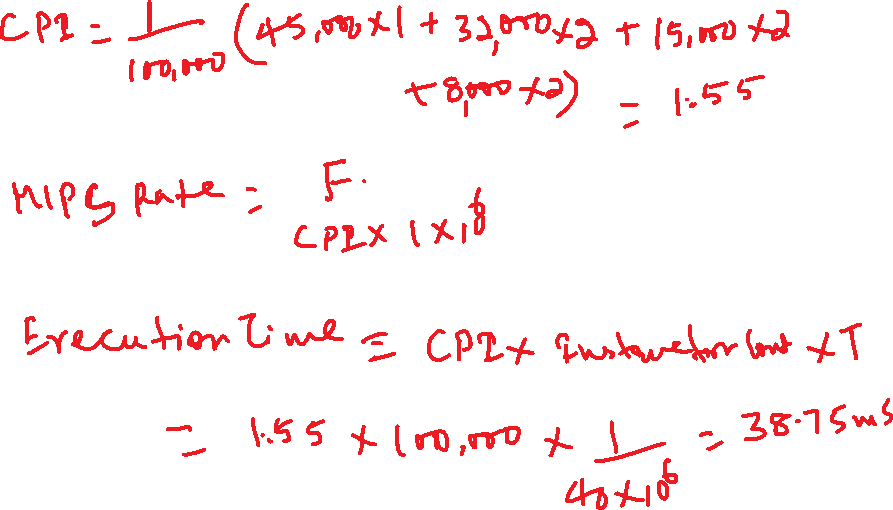 CPI = 1/100,000 (45,000 x 1 + 32,000 x 2 + 15,000 x 2
+ 8,000 x 2) = 1.55
MIPS Rate = F
CPI x 1 x 10^6
Execution Time = CPI x Instruction Count x T
= 1.55 x 100,000 x 1/40x10^6 = 38.75 ms